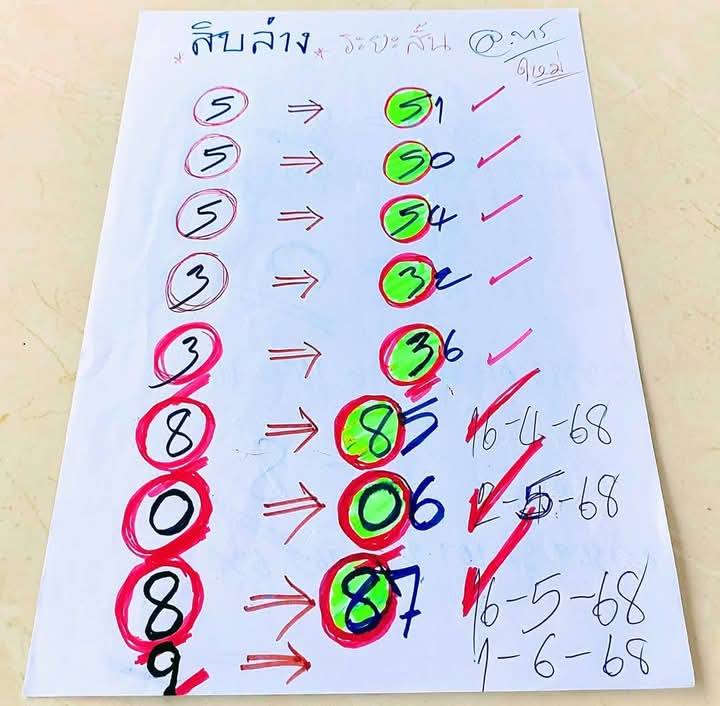 *สิบล่าง* ระยะสั้น
ใหม่
5 ⇒ 51 ✓
5 ⇒ 50 ✓
5 ⇒ 54 ✓
3 ⇒ 32 ✓
3 ⇒ 36 ✓
8 ⇒ 85 ✓ 16-4-68
0 ⇒ 06 ✓ 2-5-68
8 ⇒ 87 ✓ 16-5-68
9 ⇒ 1-6-68